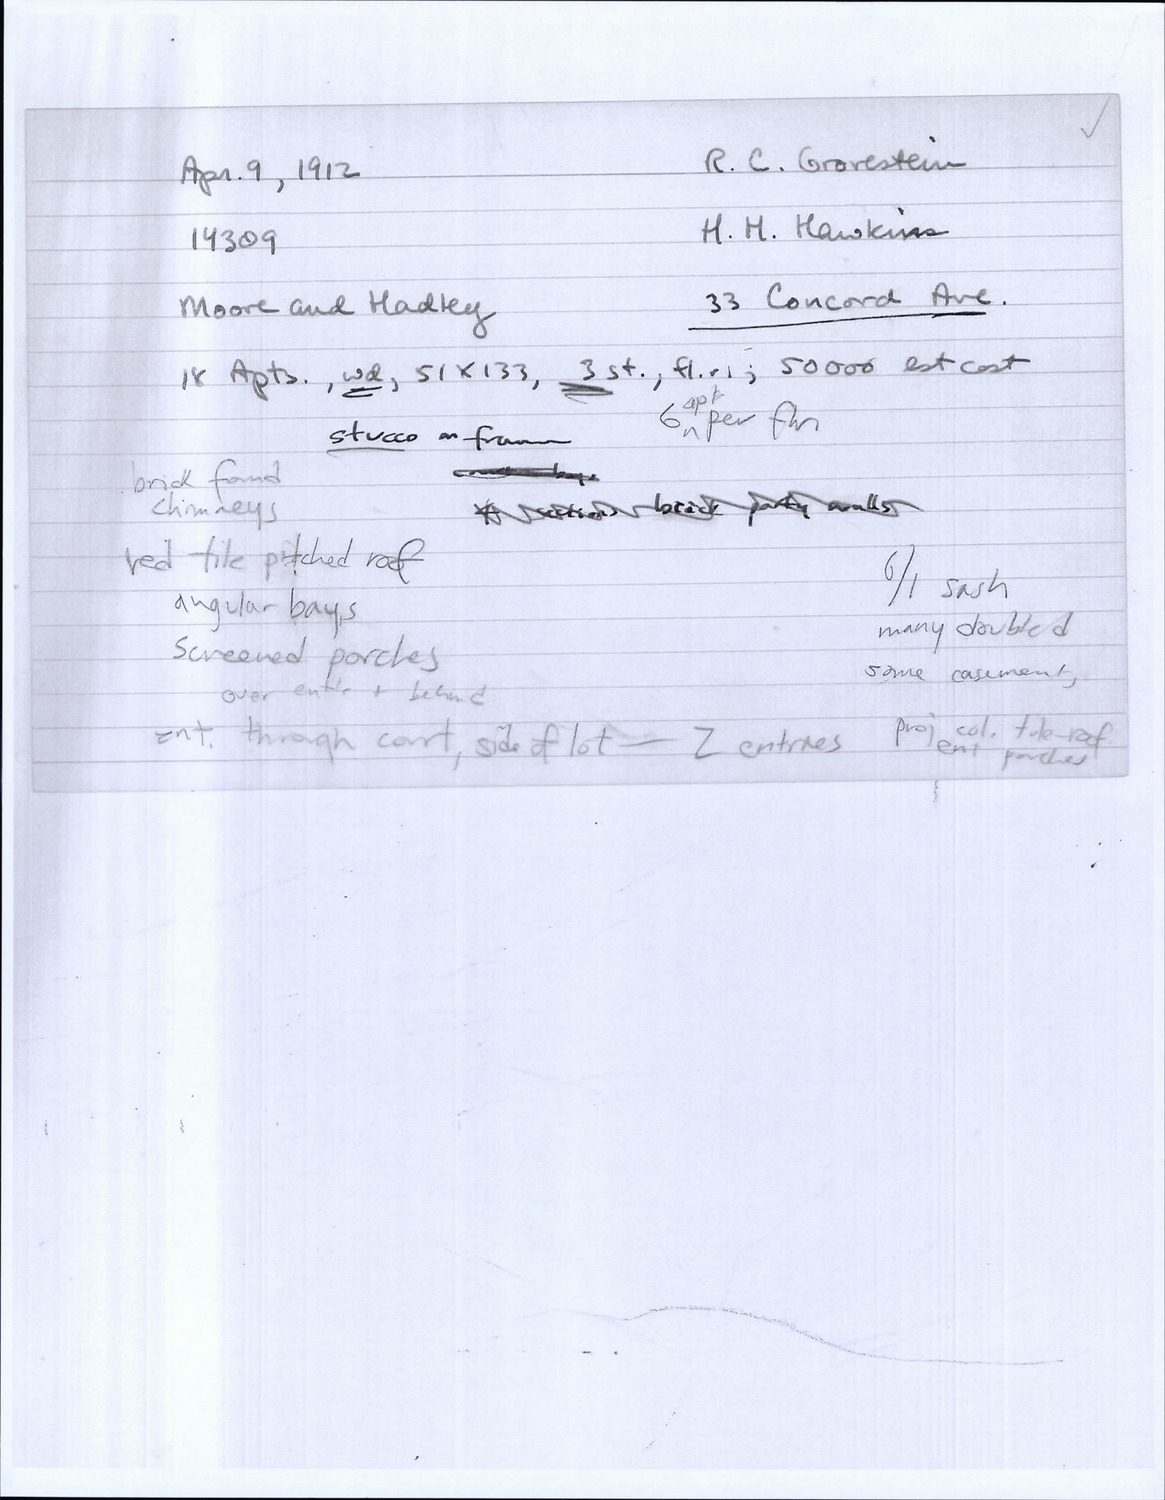 Apr. 9, 1912
R. C. Grovestein
14309
H. M. Hawkins
Moore and Hadley
33 Concord Ave.
18 Apts., wd, 51 X 133, 3 st., fl. ; 50000 est cost
6 apt per flr
stucco on frame
brick found
chimneys
brick party walls
red tile pitched roof
6/1 sash
angular bays
many doubled
Screened porches
some casements
over entr. + behind
ent. through court, side of lot — 2 entries
proj col. tile-roof
ent porches